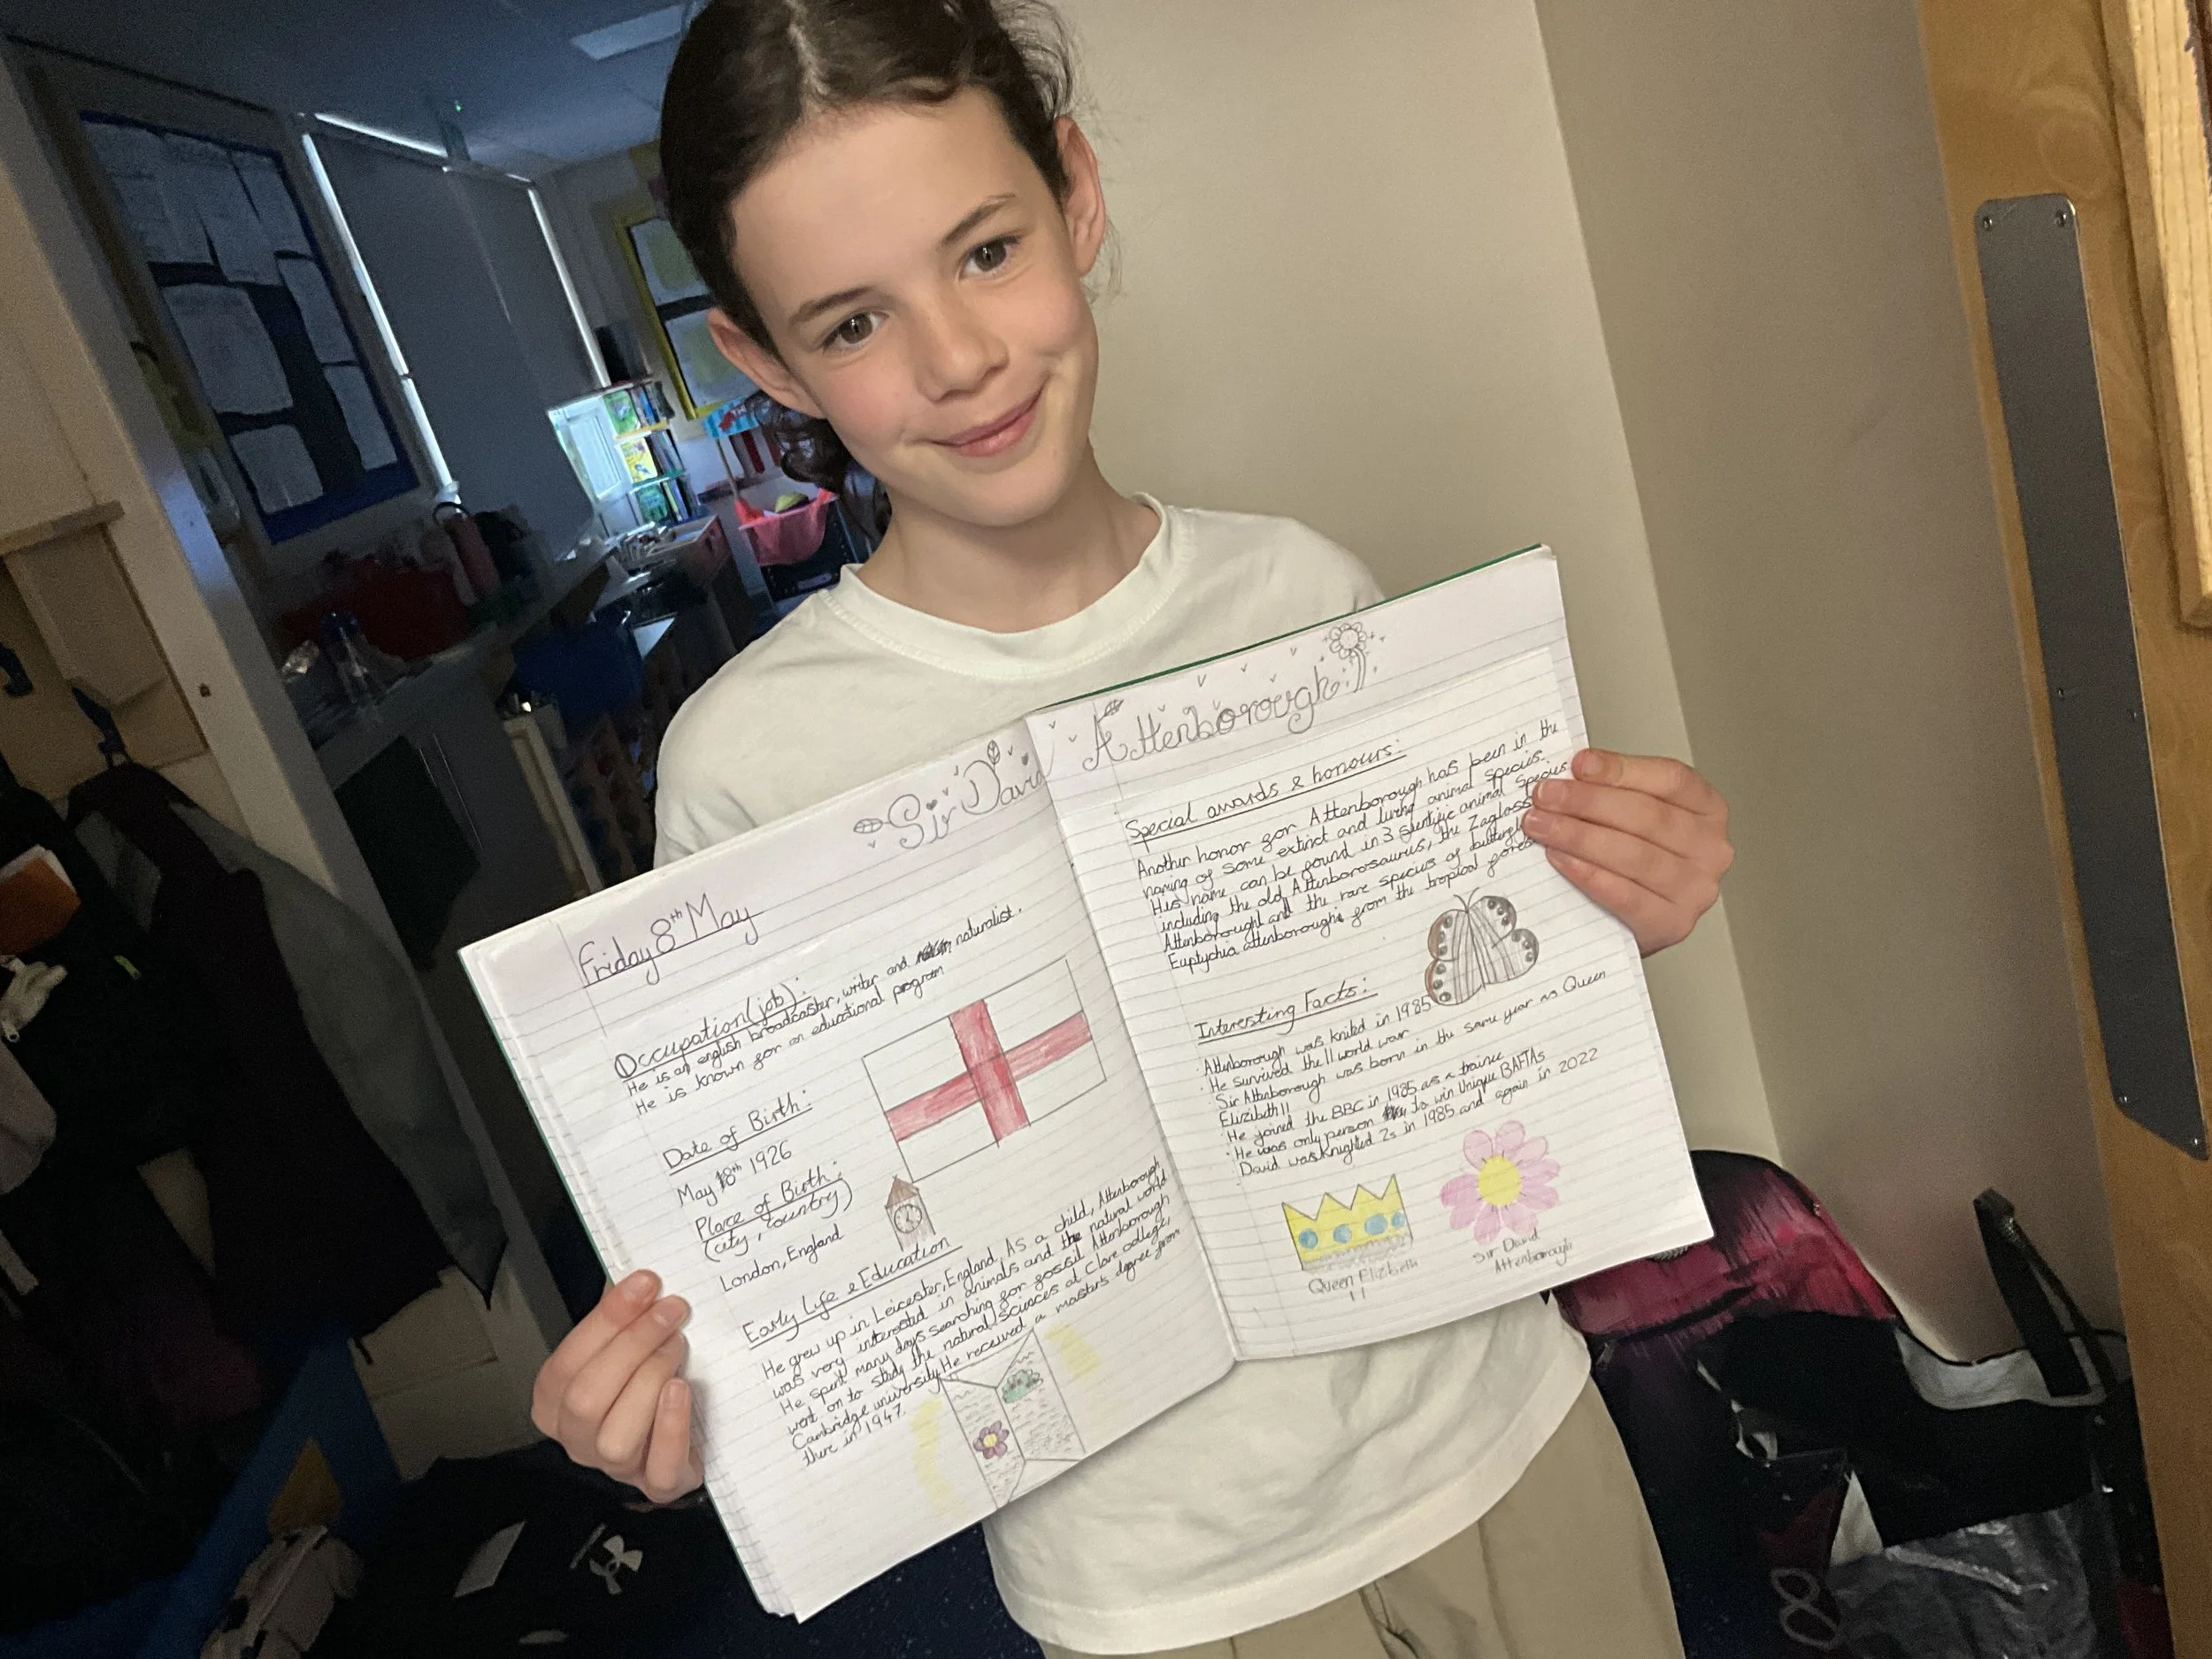 Sir David
Attenborough
Friday 8th May
Occupation (job):
He is an english broadcaster, writer and naturalist.
He is known for an educational program
Date of Birth:
May 8th 1926
Place of Birth:
(city, country)
London, England
Early Life & Education
He grew up in Leicester, England. As a child, Attenborough
was very interested in animals and the natural world
He spent many days searching for fossil Attenborough
went on to study the natural sciences at Clare college,
Cambridge university. He received a masters degree from
there in 1947.
Special awards & honours:
Another honor for Attenborough has been in the
naming of some extinct and living animal species.
His name can be found in 3 animal species
including the old Attenborosaurus, the Zagloss
Attenboroughi and the rare species of butterfly
Euptychia attenboroughi from the tropical fores
Interesting Facts:
Attenborough was knited in 1985
· He survived the II world war
Sir Attenborough was born in the same year as Queen
Elizibeth II
· He joined the BBC in 1985 as a trainee
· He was only person to win Unique BAFTAs
David was Knighted 2s in 1985 and again in 2022
Queen Elizibeth
II
Sir David
Attenborough